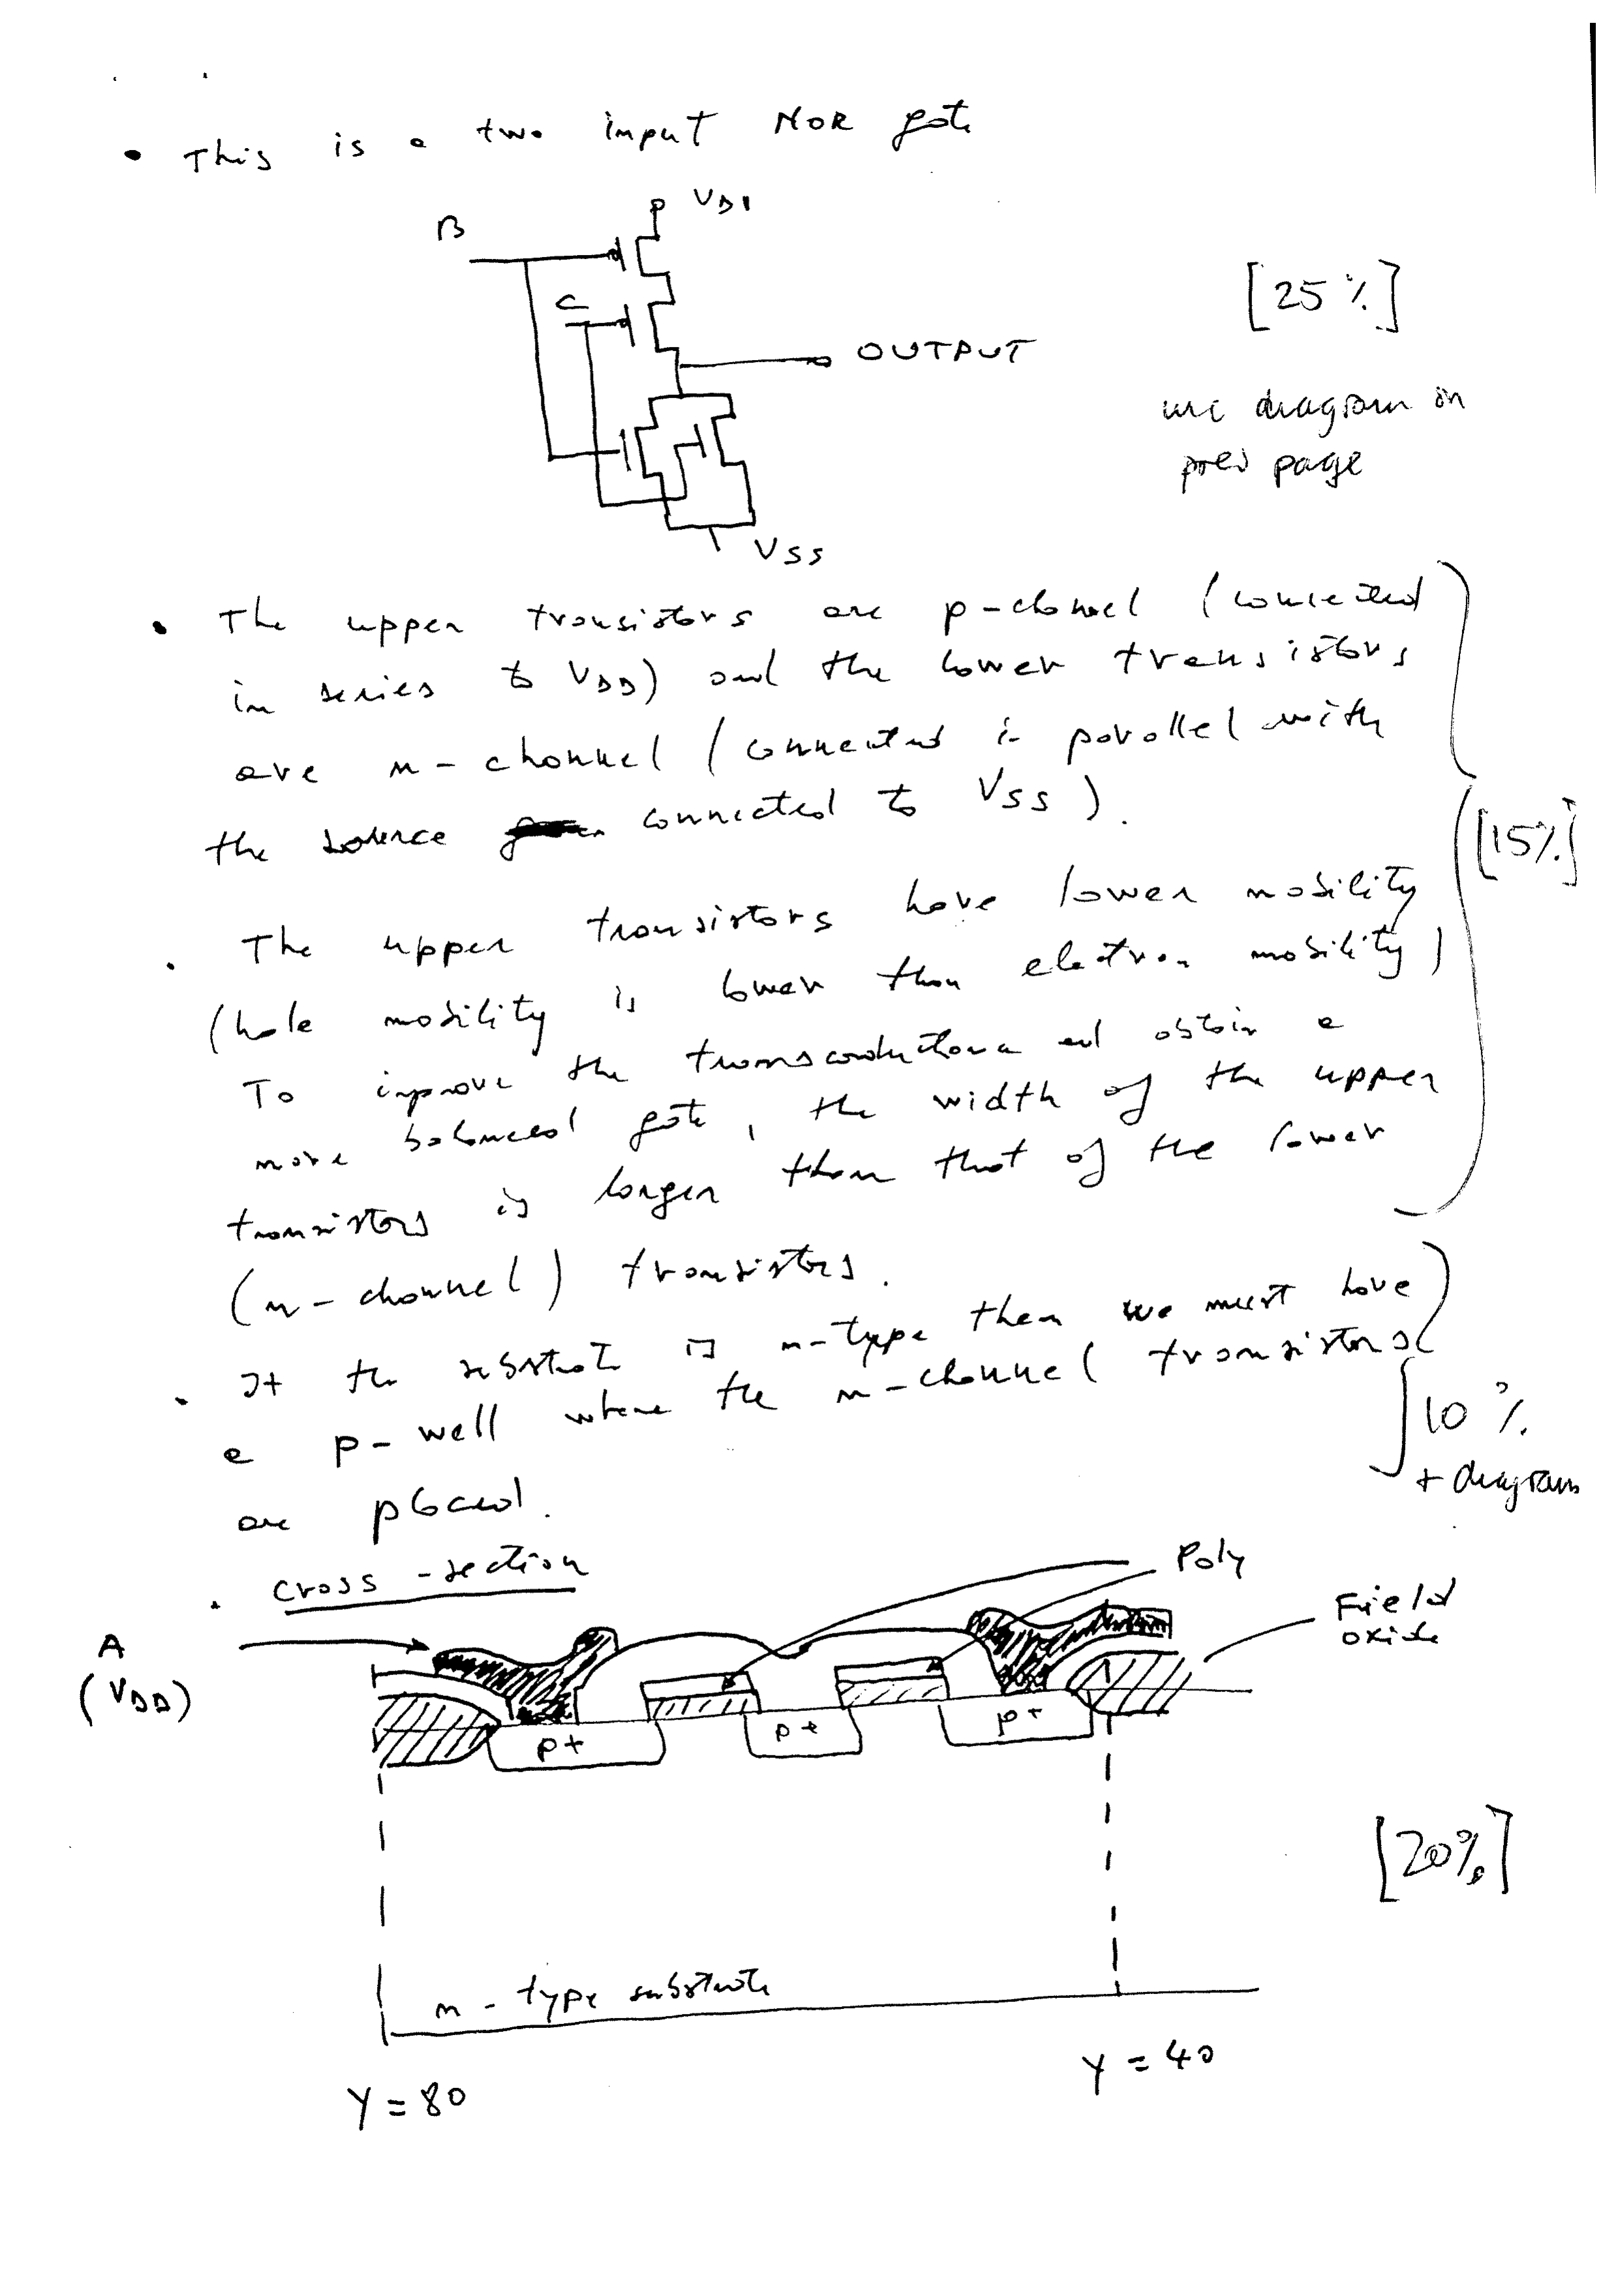 • This is a two input NOR gate
VDD
B
C
[25%]
OUTPUT
diagram in
prev page
VSS
• The upper transistors are p-channel (connected
in series to VDD) and the lower transistors
are n-channel (connected in parallel with
the source connected to VSS).
[15%]
• The upper transistors have lower mobility
(hole mobility is lower than electron mobility)
To improve the transconductance and obtain a
more balanced gate, the width of the upper
transistors is larger than that of the lower
(n-channel) transistors.
• If the substrate is n-type then we must have
a p-well where the n-channel transistors
are placed.
10%
+ diagram
• Cross-section
Poly
Field
oxide
A
(VDD)
p+
p+
p+
[20%]
n-type substrate
Y = 80
Y = 40